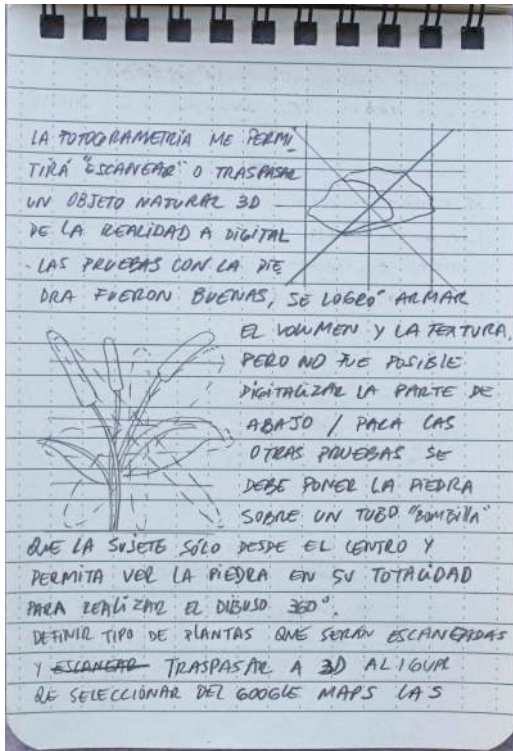 LA FOTOGRAMETRÍA ME PERMI
TIRÁ "ESCANEAR" O TRASPASAR
UN OBJETO NATURAL 3D
DE LA REALIDAD A DIGITAL
- LAS PRUEBAS CON LA PIE
DRA FUERON BUENAS, SE LOGRÓ ARMAR
EL VOLUMEN Y LA TEXTURA,
PERO NO FUE POSIBLE
DIGITALIZAR LA PARTE DE
ABAJO / PARA LAS
OTRAS PRUEBAS SE
DEBE PONER LA PIEDRA
SOBRE UN TUBO "BOMBILLA"
QUE LA SUJETE SÓLO DESDE EL CENTRO Y
PERMITA VER LA PIEDRA EN SU TOTALIDAD
PARA REALIZAR EL DIBUJO 360°.
DEFINIR TIPO DE PLANTAS QUE SERÁN ESCANEADAS
Y ESCANEAR TRASPASAR A 3D AL IGUAL
QE SELECCIONAR DEL GOOGLE MAPS LAS